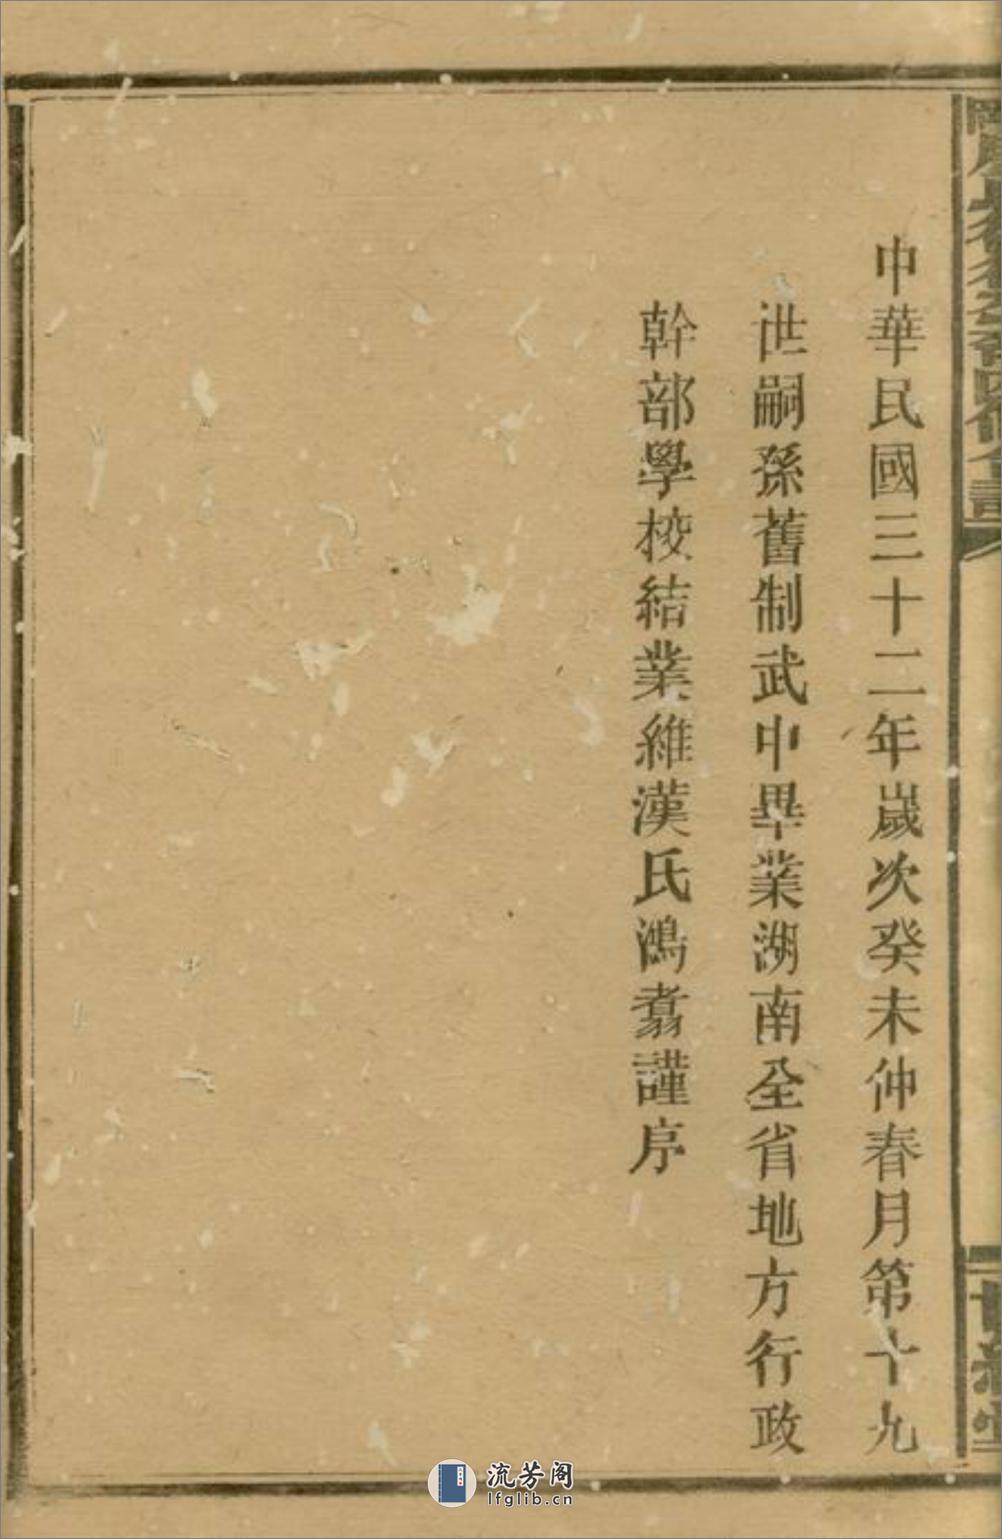 中華民國三十二年歲次癸未仲春月第十九
世嗣孫舊制武中畢業湖南全省地方行政
幹部學校結業維漢氏鴻翥謹序
流芳阁
lfglib.cn